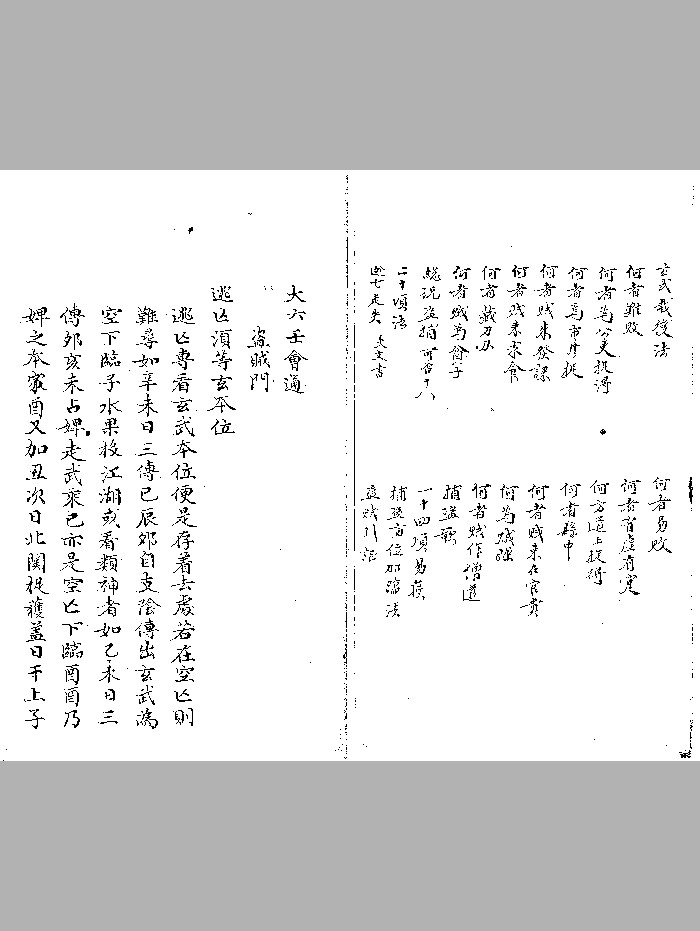 玄武歌後法
何者易敗
何者難敗
何者有虛有實
何者為公吏捉得
何方道上捉得
何者為市井捉
何者縣中
何者賊來發課
何者賊來在官責
何者賊來求食
何為賊強
何者藏刀刃
何者賊作僧道
何者賊為僉子
捕盜歌
總況盜捕可否十八
一十四項易獲
二十項法
捕盜方位加臨法
逃亡走失 失文書
盜賊引証
大六壬會通
盜賊門
逃亡須等玄本位
逃亡專看玄武本位便是存着去處若在空亡則
難尋如辛未日三傳巳辰卯自支陰傳出玄武為
空下臨子水果投江湖或看類神者如乙未日三
傳卯亥未占婢走武乘巳亦是空亡下臨酉酉乃
婢之本家酉又加丑次日北關捉獲蓋日干上子